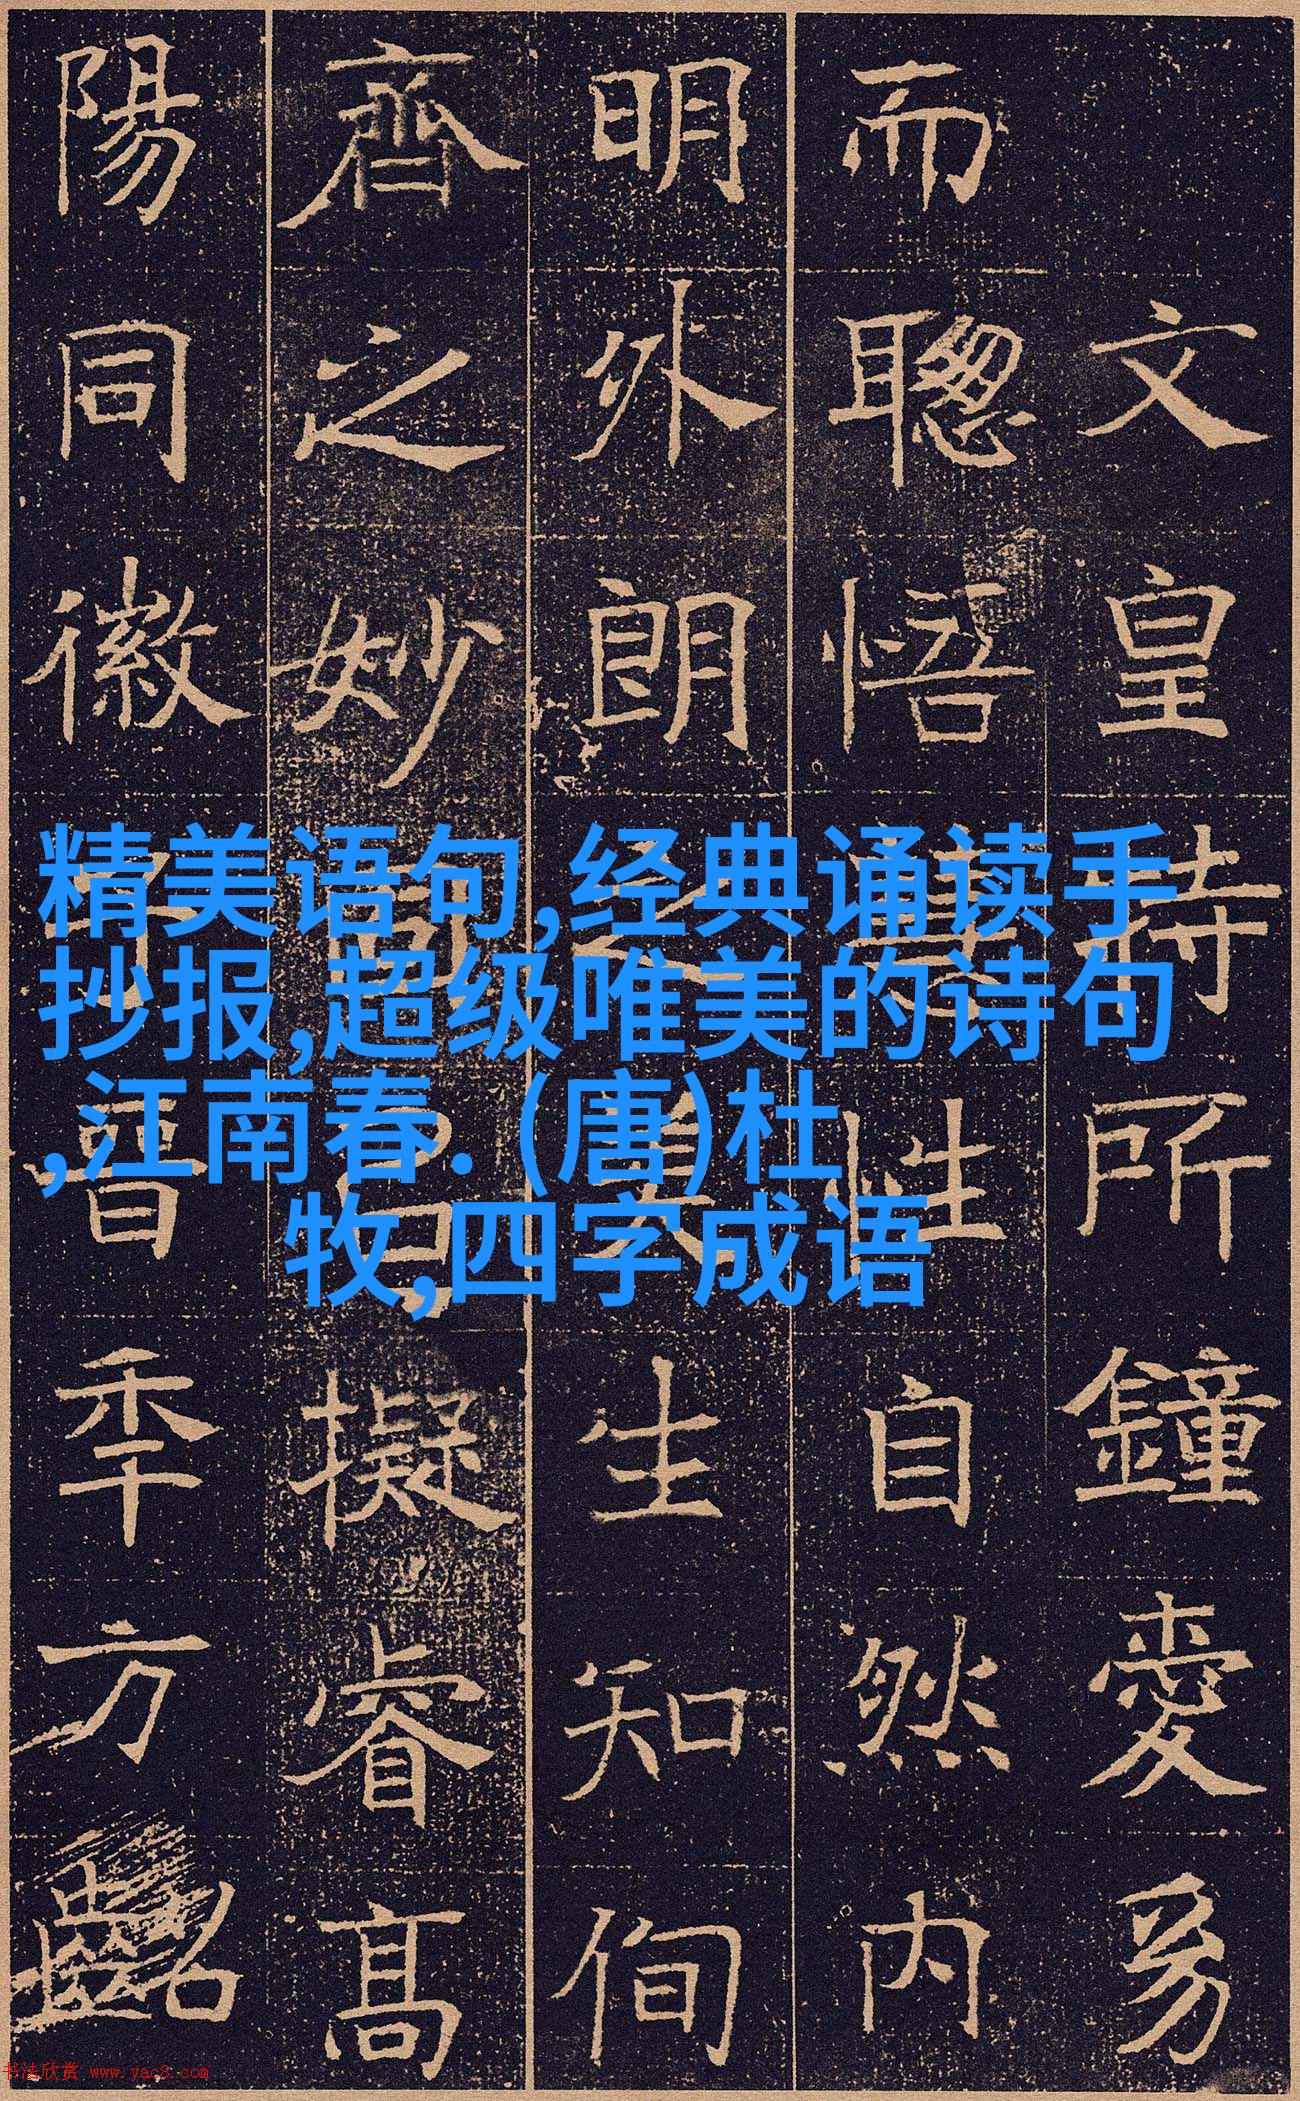 文皇特所鍾愛
而聰悟性自然内
明外朗之美生知徇
齊之妙擬睿高
陽同徽子晉季方齠
精美语句,经典诵读手
抄报,超级唯美的诗句
,江南春. (唐)杜
牧,四字成语
书法欣赏 www.yac8.com